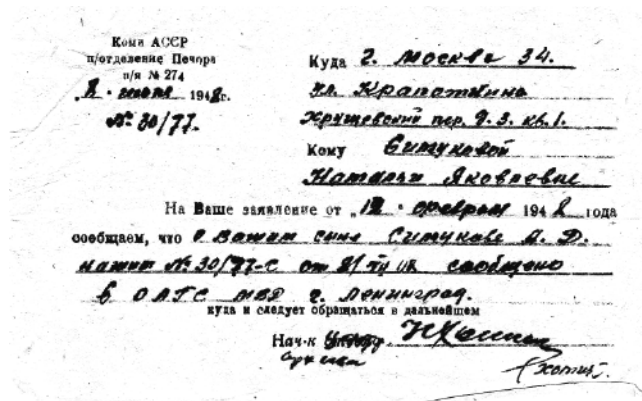 Коми АССР
п/отделение Печора
п/я № 274
"8" июля 1948г.
№ 30/77.
Куда г. Москва 34.
ул. Крапоткина
Хрущевский пер. д. 3. кв. 1.
Кому Ситуковой
Наталье Яковлевне
На Ваше заявление от "12" февраля 1948 года
сообщаем, что о вашем сыне Ситукове А. Д.
нашим № 30/77-с от сообщено
в ОАГС МВД г. Ленинград.
куда и следует обращаться в дальнейшем
Нач-к